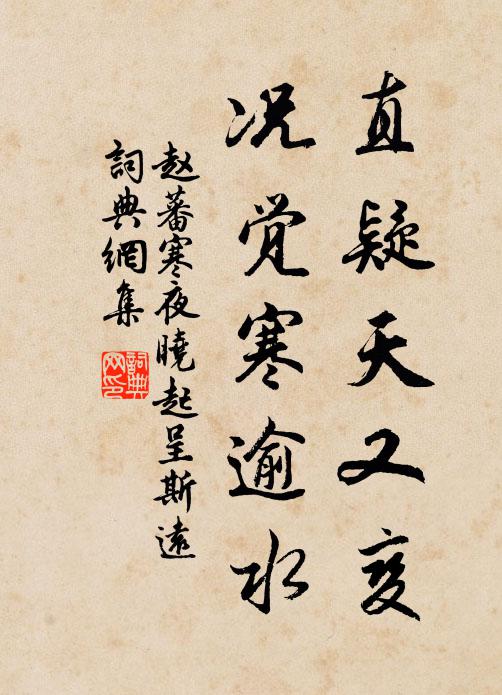 直疑天又变
况觉寒逾水
赵蕃寒夜曉起呈斯遠
詞典網集
詞典网印